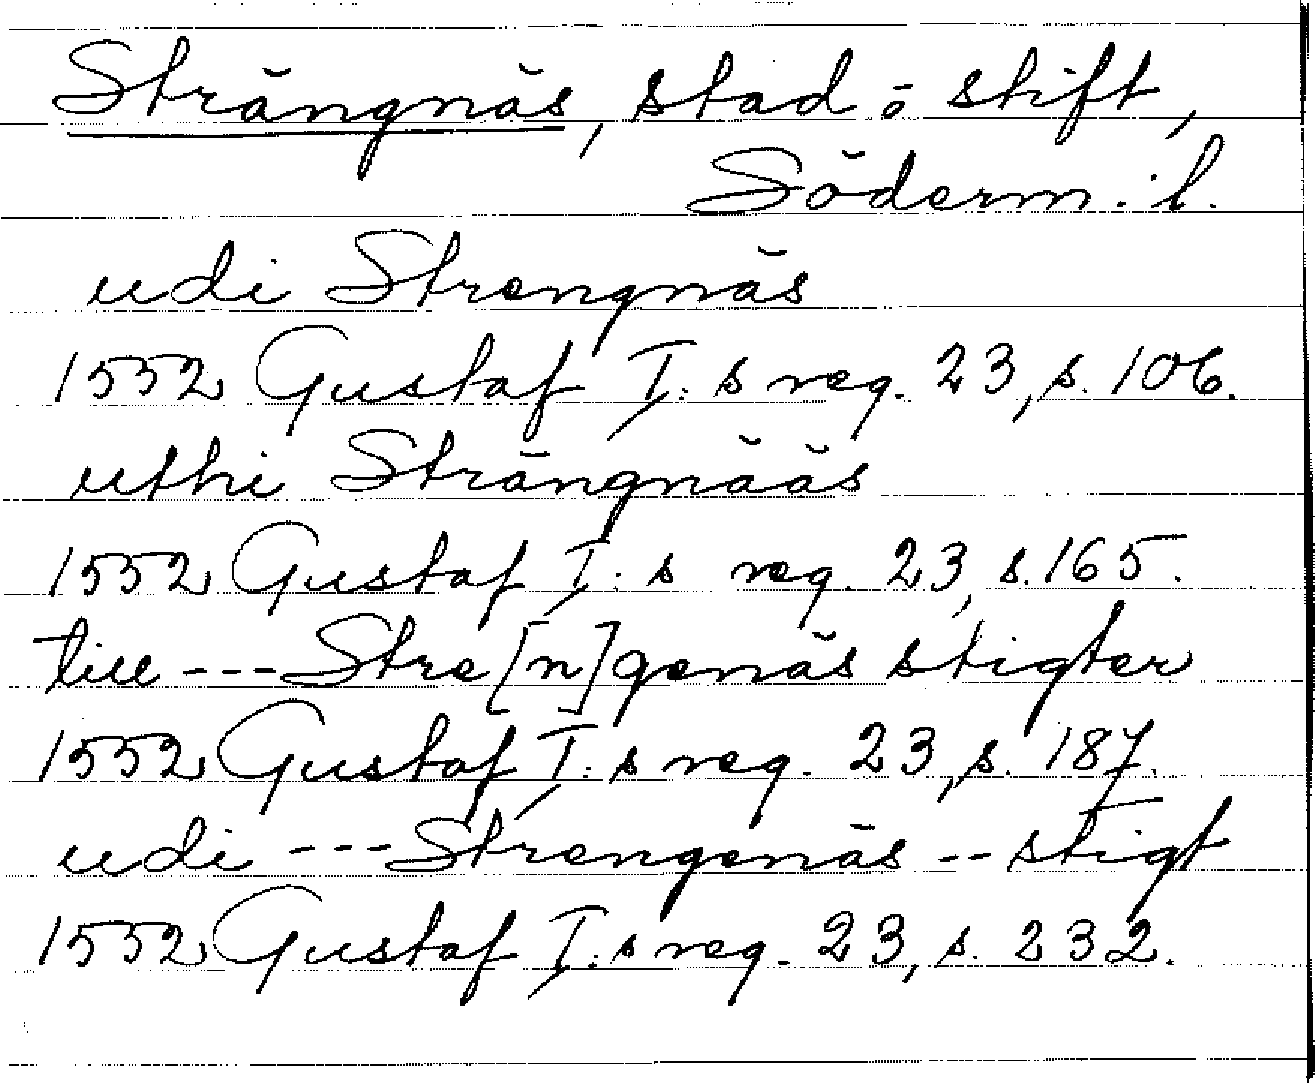 Strängnäs, stad o stift,
Söderm. l.
udi Strengnäs
1552 Gustaf I:s reg. 23, s. 106.
uthi Strängnääs
1552 Gustaf I:s reg. 23, s. 165.
till --- Stre[n]genäs stigter
1552 Gustaf I:s reg. 23, s. 187.
udi --- Strengenäs -- stigt
1552 Gustaf I:s reg. 23, s. 232.